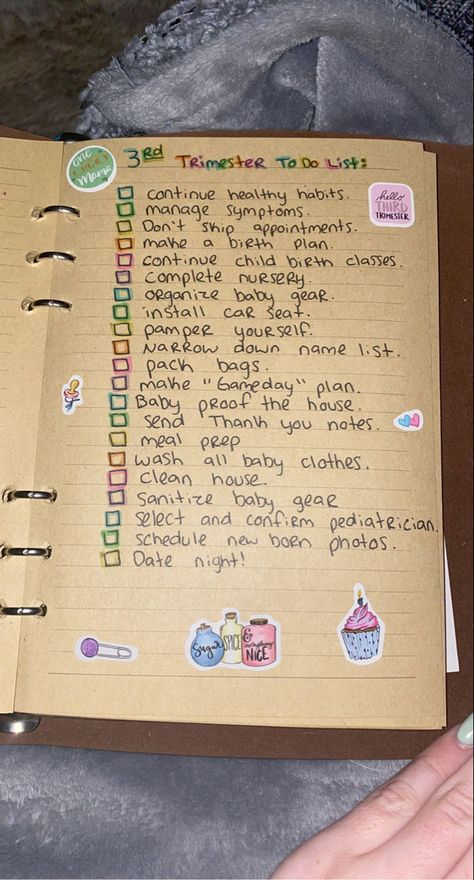 one
Mama
3rd Trimester To Do List:
hello
THIRD
TRIMESTER
continue healthy habits.
manage symptoms.
Don't skip appointments.
make a birth plan.
continue child birth classes.
complete nursery.
organize baby gear.
install car seat.
pamper yourself.
Narrow down name list.
pack bags.
make "Gameday" plan.
Baby proof the house.
Send Thank you notes.
meal prep
wash all baby clothes.
clean house.
Sanitize baby gear
select and confirm pediatrician.
schedule new born photos.
Date night!
Sugar
SPICE
&
everything
NICE